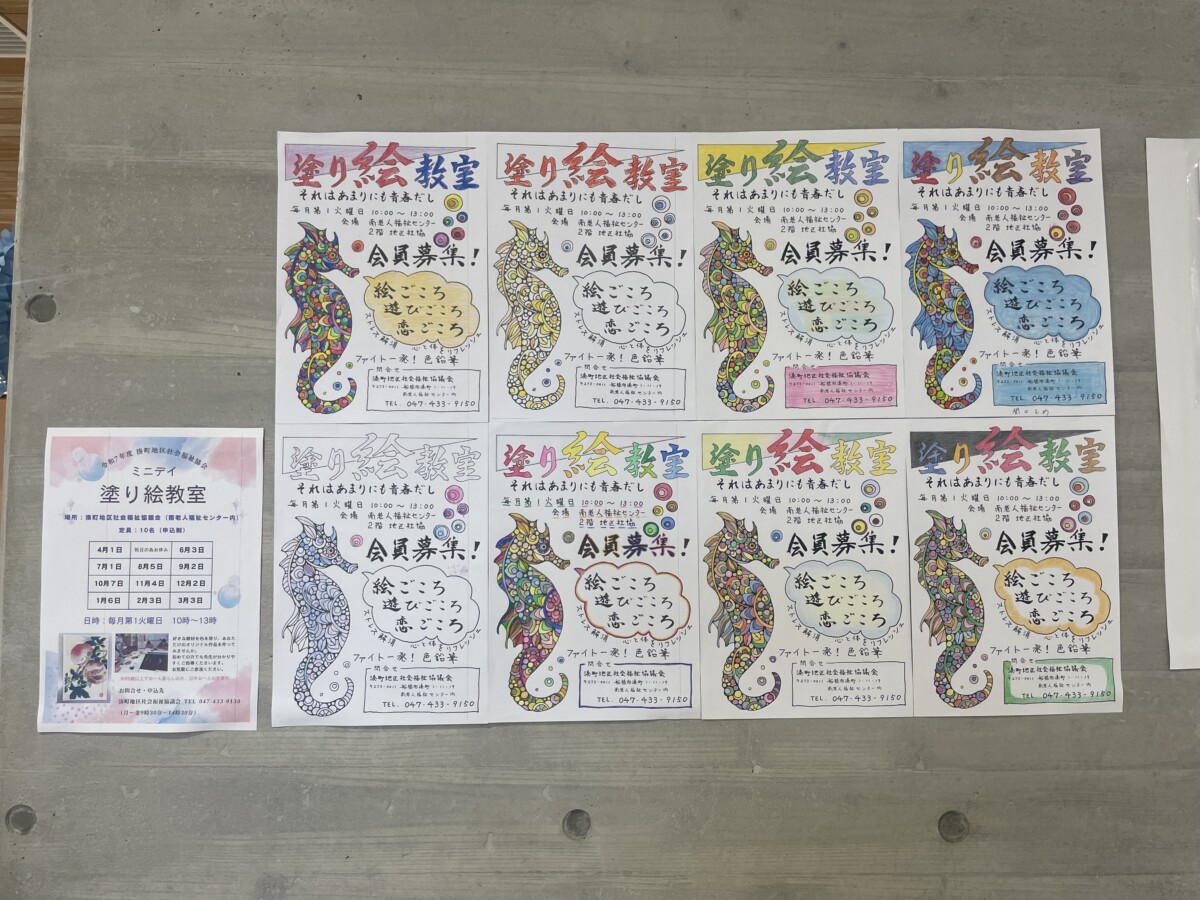 令和7年度 湊町地区社会福祉協会
ミニデイ
塗り絵教室
場所:湊町地区社会福祉協議会(南老人福祉センター内)
定員:10名(申込制)
4月1日 祝日の為お休み 6月3日
7月1日 8月5日 9月2日
10月7日 11月4日 12月2日
1月6日 2月3日 3月3日
日時:毎月第1火曜日 10時~13時
お問合せ・申込先
湊町地区社会福祉協議会 TEL 047-433-9150
塗り絵教室
それはあまりにも青春だし
毎月第1火曜日 10:00~13:00
会場 南老人福祉センター
2階 地区社協
会員募集!
絵ごころ
遊びごころ
恋ごころ
ストレス解消 心と体をリフレッシュ
ファイト一発!色鉛筆
問合せ
湊町地区社会福祉協議会
〒273-0011 船橋市湊町1-11-19
南老人福祉センター内
TEL. 047-433-9150
塗り絵教室
それはあまりにも青春だし
毎月第1火曜日 10:00~13:00
会場 南老人福祉センター
2階 地区社協
会員募集!
絵ごころ
遊びごころ
恋ごころ
ストレス解消 心と体をリフレッシュ
ファイト一発!色鉛筆
問合せ
湊町地区社会福祉協議会
〒273-0011 船橋市湊町1-11-19
南老人福祉センター内
TEL. 047-433-9150
塗り絵教室
それはあまりにも青春だし
毎月第1火曜日 10:00~13:00
会場 南老人福祉センター
2階 地区社協
会員募集!
絵ごころ
遊びごころ
恋ごころ
ストレス解消 心と体をリフレッシュ
ファイト一発!色鉛筆
問合せ
湊町地区社会福祉協議会
〒273-0011 船橋市湊町1-11-19
南老人福祉センター内
TEL. 047-433-9150
塗り絵教室
それはあまりにも青春だし
毎月第1火曜日 10:00~13:00
会場 南老人福祉センター
2階 地区社協
会員募集!
絵ごころ
遊びごころ
恋ごころ
ストレス解消 心と体をリフレッシュ
ファイト一発!色鉛筆
問合せ
湊町地区社会福祉協議会
〒273-0011 船橋市湊町1-11-19
南老人福祉センター内
TEL. 047-433-9150
塗り絵教室
それはあまりにも青春だし
毎月第1火曜日 10:00~13:00
会場 南老人福祉センター
2階 地区社協
会員募集!
絵ごころ
遊びごころ
恋ごころ
ストレス解消 心と体をリフレッシュ
ファイト一発!色鉛筆
問合せ
湊町地区社会福祉協議会
〒273-0011 船橋市湊町1-11-19
南老人福祉センター内
TEL. 047-433-9150
塗り絵教室
それはあまりにも青春だし
毎月第1火曜日 10:00~13:00
会場 南老人福祉センター
2階 地区社協
会員募集!
絵ごころ
遊びごころ
恋ごころ
ストレス解消 心と体をリフレッシュ
ファイト一発!色鉛筆
問合せ
湊町地区社会福祉協議会
〒273-0011 船橋市湊町1-11-19
南老人福祉センター内
TEL. 047-433-9150
塗り絵教室
それはあまりにも青春だし
毎月第1火曜日 10:00~13:00
会場 南老人福祉センター
2階 地区社協
会員募集!
絵ごころ
遊びごころ
恋ごころ
ストレス解消 心と体をリフレッシュ
ファイト一発!色鉛筆
問合せ
湊町地区社会福祉協議会
〒273-0011 船橋市湊町1-11-19
南老人福祉センター内
TEL. 047-433-9150
塗り絵教室
それはあまりにも青春だし
毎月第1火曜日 10:00~13:00
会場 南老人福祉センター
2階 地区社協
会員募集!
絵ごころ
遊びごころ
恋ごころ
ストレス解消 心と体をリフレッシュ
ファイト一発!色鉛筆
問合せ
湊町地区社会福祉協議会
〒273-0011 船橋市湊町1-11-19
南老人福祉センター内
TEL. 047-433-9150